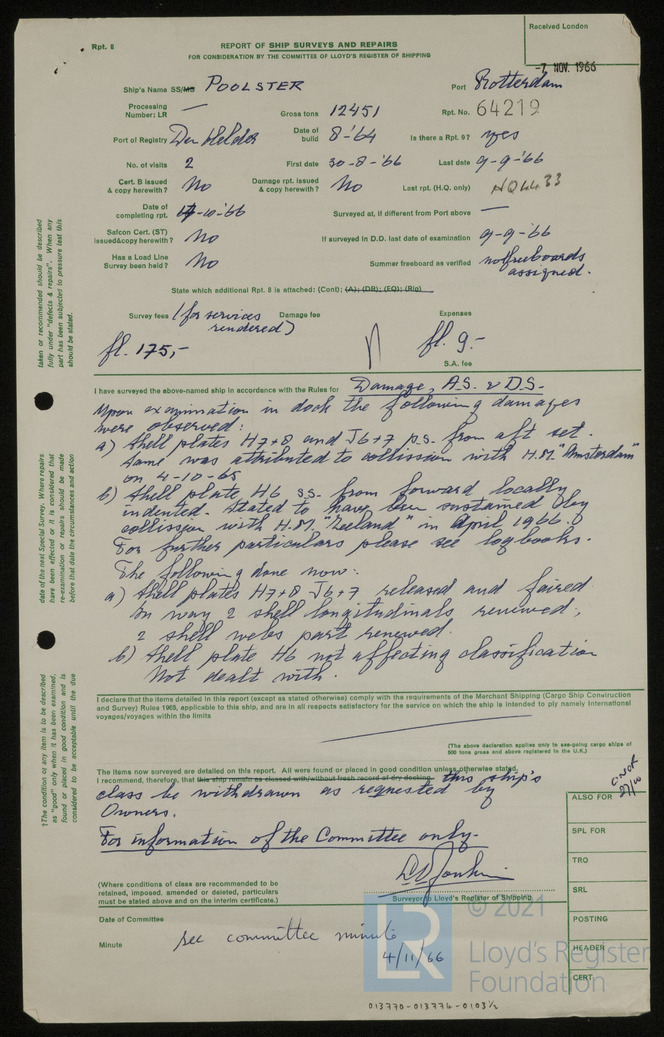 Rpt. 8
REPORT OF SHIP SURVEYS AND REPAIRS
FOR CONSIDERATION BY THE COMMITTEE OF LLOYD'S REGISTER OF SHIPPING
Received London
-7 NOV. 1966
Ship's Name SS/MS POOLSTER
Port Rotterdam
Processing Number: LR —
Gross tons 12451
Rpt. No. 64219
Port of Registry Den Helder
Date of build 8-'64
Is there a Rpt. 9? yes
No. of visits 2
First date 30-8-'66
Last date 9-9-'66
Cert. B issued & copy herewith? No
Damage rpt. issued & copy herewith? No
Last rpt. (H.Q. only) HQ4433
Date of completing rpt. -10-'66
Surveyed at, if different from Port above —
Safcon Cert. (ST) issued & copy herewith? No
If surveyed in D.D. last date of examination 9-9-'66
Has a Load Line Survey been held? No
Summer freeboard as verified no freeboards assigned.
State which additional Rpt. 8 is attached: (Cont); (A); (DR); (EQ); (Rig)
Survey fees (for services rendered)
Damage fee
Expenses
fl. 175,-
fl. 9.-
S.A. fee
I have surveyed the above-named ship in accordance with the Rules for Damage, A.S. & D.S.
Upon examination in dock the following damages
were observed:
a) Shell plates H7+8 and J6+7 p.s. from aft set.
Same was attributed to collision with H.M. "Amsterdam"
on 4-10-65.
b) Shell plate H6 s.s. from forward locally
indented. Stated to have been sustained by
collision with H.M. "Zeeland" in April 1966.
For further particulars please see logbooks.
The following done now:
a) Shell plates H7+8 J6+7 released and faired
In way 2 shell longitudinals renewed,
2 shell webs part renewed.
b) Shell plate H6 not affecting classification
Not dealt with.
I declare that the items detailed in this report (except as stated otherwise) comply with the requirements of the Merchant Shipping (Cargo Ship Construction
and Survey) Rules 1965, applicable to this ship, and are in all respects satisfactory for the service on which the ship is intended to ply namely International
voyages/voyages within the limits
(The above declaration applies only to sea-going cargo ships of
500 tons gross and above registered in the U.K.)
The items now surveyed are detailed on this report. All were found or placed in good condition unless otherwise stated.
I recommend, therefore, that this ship remain as classed with/without fresh record of dry docking. this ship's
class be withdrawn as requested by
Owners.
For information of the Committee only-
(Where conditions of class are recommended to be
retained, imposed, amended or deleted, particulars
must be stated above and on the interim certificate.)
Surveyor to Lloyd's Register of Shipping
Date of Committee
Minute see committee minute
4/11/66
ALSO FOR
SPL FOR
TRO
SRL
POSTING
HEADER
CERT
taken or recommended should be described
fully under "defects & repairs". When any
part has been subjected to pressure test this
should be stated.
date of the next Special Survey. Where repairs
have been effected or it is considered that
re-examination or repairs should be made
before that date the circumstances and action
†The condition of any item is to be described
as "good" only when it has been examined,
found or placed in good condition and is
considered to be acceptable until the due
LR
© 2021
Lloyd's Register
Foundation
013770-013774-0103½